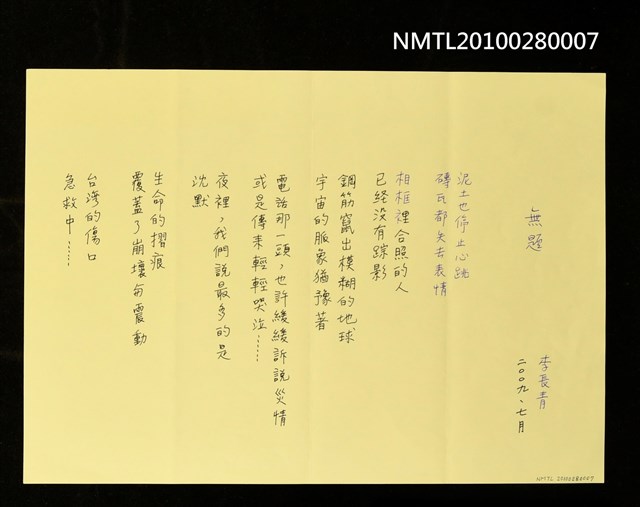 NMTL20100280007
無題
李長青
二〇〇九、七月
泥土也停止心跳
磚瓦都失去表情
相框裡合照的人
已經沒有踪影
鋼筋竄出模糊的地球
宇宙的脈象猶豫著
電話那一頭，也許緩緩訴說災情
或是傳來輕輕哭泣……
夜裡，我們說最多的是
沈默
生命的摺痕
覆蓋了崩壞與震動
台灣的傷口
急救中……
NMTL 20100280007